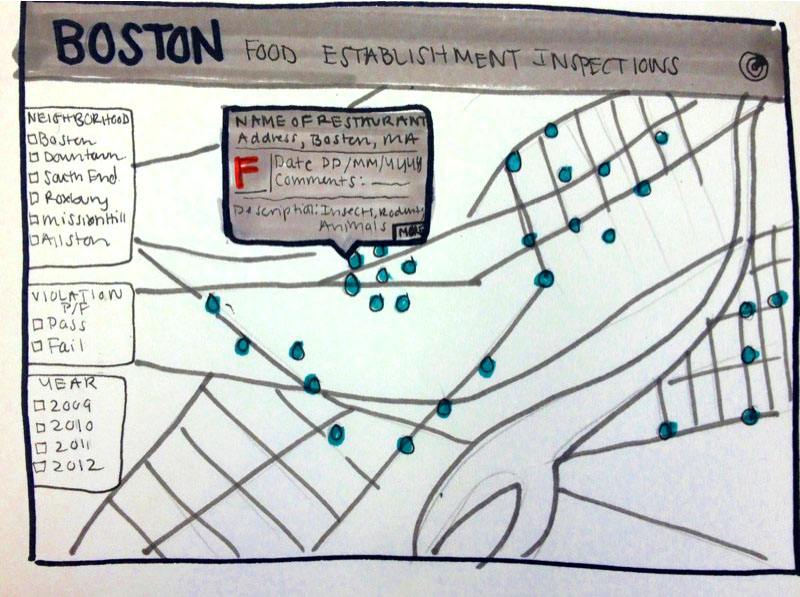 BOSTON FOOD ESTABLISHMENT INSPECTIONS
NEIGHBORHOOD
Boston
Downtown
South End
Roxbury
Mission Hill
Allston
VIOLATION
P/F
Pass
Fail
YEAR
2009
2010
2011
2012
NAME OF RESTAURANT
Address, Boston, MA
F
Date DD/MM/YYYY
Comments:
Description: Insects, Rodents,
Animals
MORE